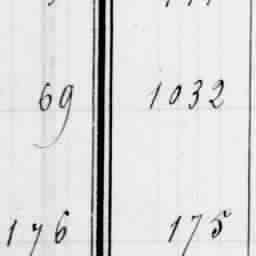 69 1032
176 175